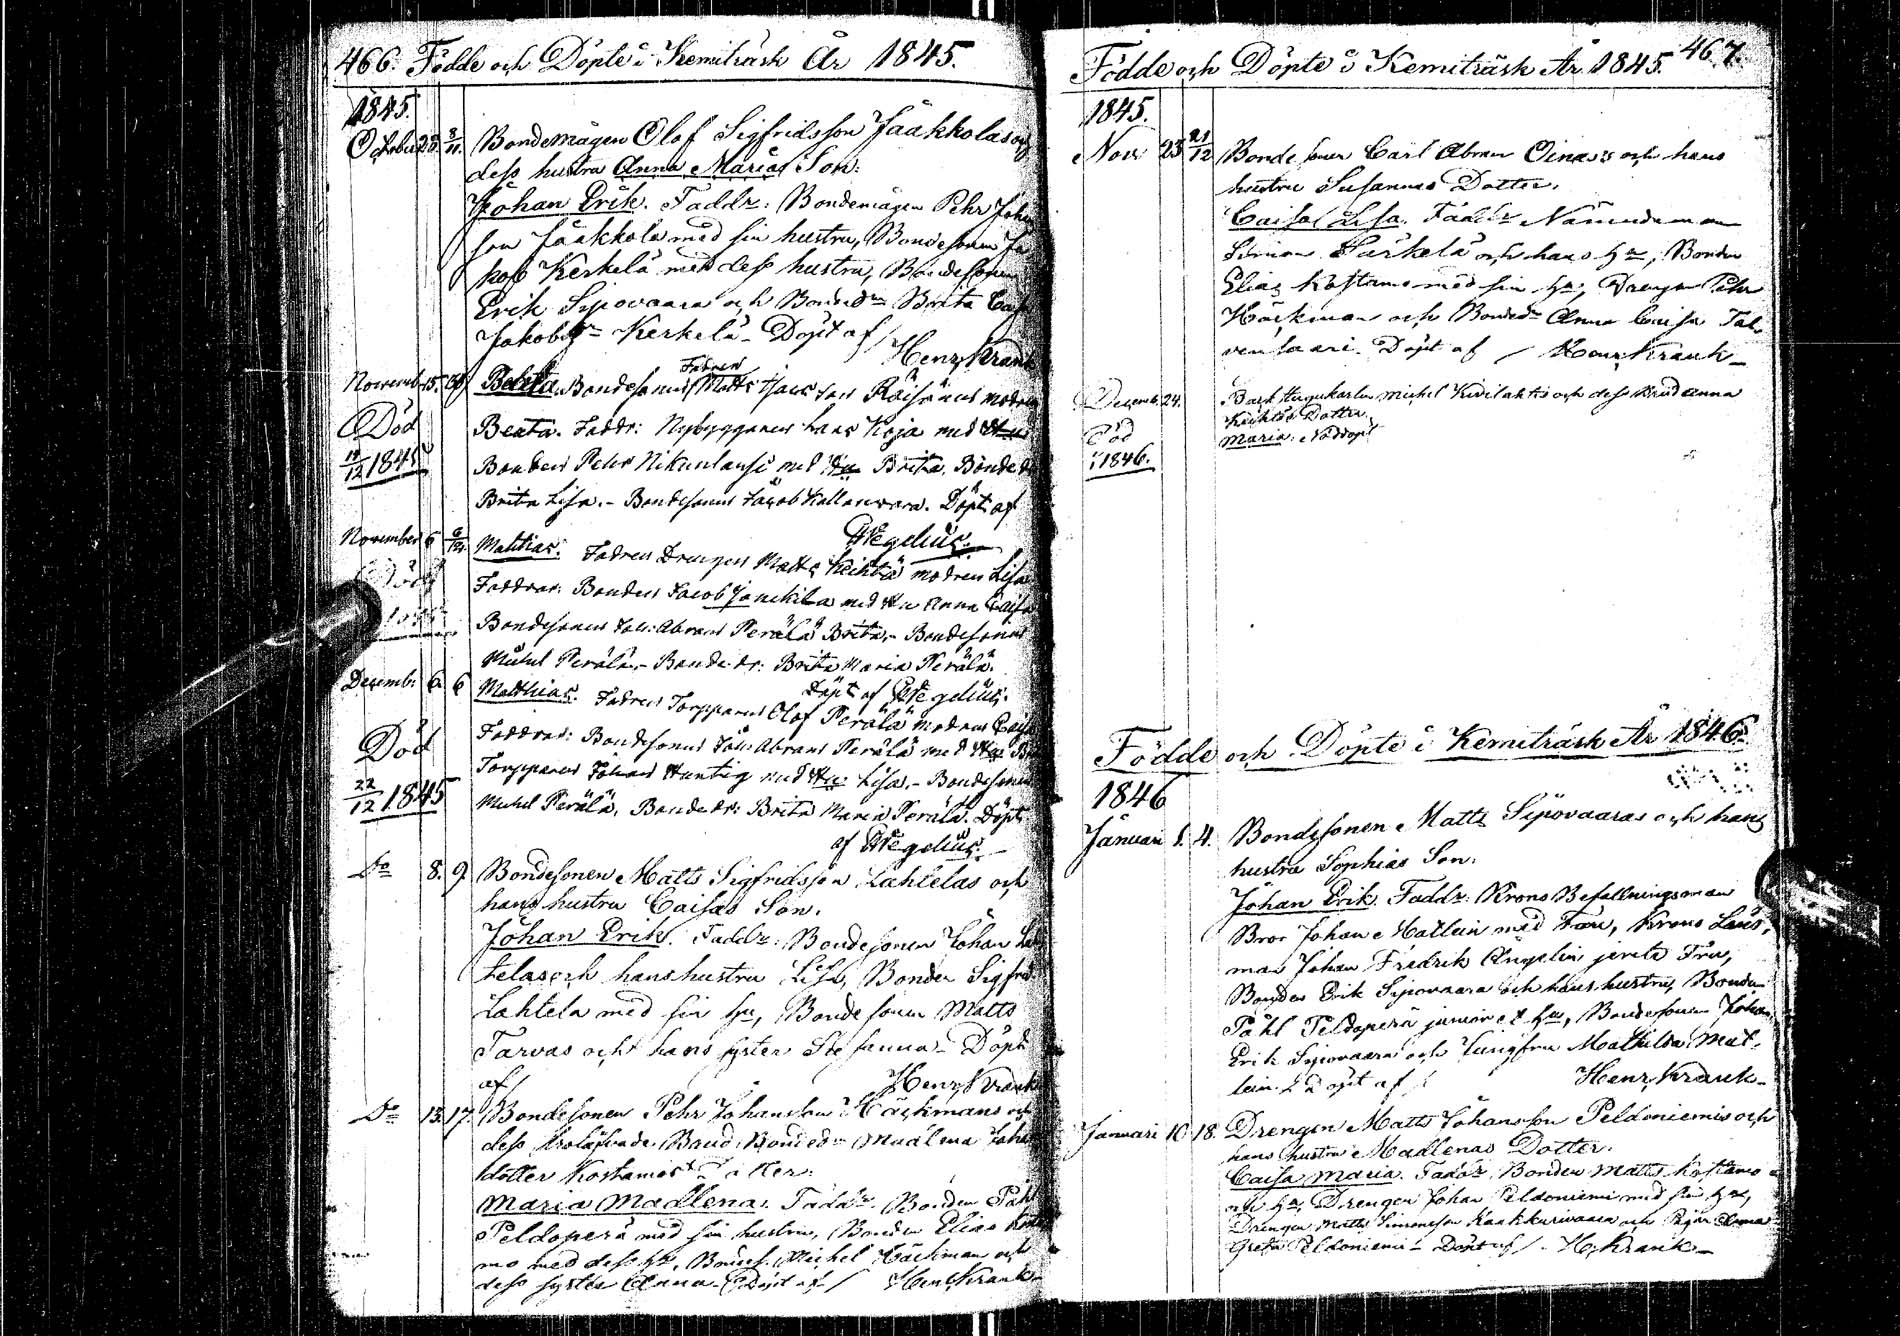 466. Födde och Döpte i Kemiträsk År 1845.
1845.
October 28 8/11. Bondemågen Olof Sigfridsson Jaakkolas och
dess hustru Anna Marias Son:
Johan Erik. Faddr: Bondemågen Pehr Johan
son Jaakkola med sin hustru, Bondesonen Ja
kob Kerkelä med dess hustru, Bondesonen
Erik Sipovaara och Bonded:r Brita Caisa
Jakobs Kerkelä. Döpt af /
Henr. Krank
Novemb: 15. Beata. Bondesonens Fadren Matts Räisänens modren
Död
Beata. Faddr: Nybyggaren Hans Koja med Hu
19/12 1845
Bonden Pehr Nikunlaussi med Hu Brita. Bonde dr
Brita Lisa. - Bondesonen Jacob Kallanvara. Döpt af
Wegelius.
November 6 6/12. Matthias. Fadren Drengen Matts Keihtä modren Lisa
Död
Faddrar: Bonden Jacob Janckila med Hu Anna Caisa
Bondesonen Joh: Abram Perälä Brita. - Bondesonen
Michel Perälä. - Bonde dr: Brita Maria Perälä.
Döpt af Wegelius.
Decemb: 6. 6 Matthias. Fadren Torpparen Olof Perälä modren Caisa
Död
Faddrar: Bondesonen Joh: Abram Perälä med Hu Br
Torpparen Johan Huntig med Hu: Lisa. - Bondesonen
22/12 1845
Michel Perälä, Bonde dr: Brita Maria Perälä. Döpt
af Wegelius.
Do 8. 9. Bondesonen Matts Sigfridsson Lahtelas och
hans hustru Caisas Son.
Johan Erik. Faddr: Bondesonen Johan Lah
telas och hans hustru Lisa, Bonden Sigfrid
Lahtela med sin hu, Bondesonen Matts
Tarvas och hans syster Stefanna. Döpt
af / Henr. Krank
Do 13. 17. Bondesonen Pehr Johansson Häckmans och
dess Brud Bonded:r Madlena Johans
dotter Kostamos Dotter:
Maria Madlena. Faddr. Bonden Påhl
Peldoperä med sin hustru, Bonden Elias Kosta
mo med dess hu, Bondes. Michel Häckman och
dess syster Anna. Döpt af / Henr. Krank

Födde och Döpte i Kemiträsk År 1845. 467.
1845.
Nov. 23 21/12 Bondesonen Carl Abram Oinas's och hans
hustru Susannas Dotter.
Caisa Lisa. Faddr Nämndeman
Simon Särkelä och hans hu, Bonden
Elias Kostamo med sin hu, Drengen Pehr
Häckman och Bonded:r Anna Caisa Tal
ventaari. Döpt af / Henr. Krank
Decemb. 24. Michel Kivilahtis och dess Brud Anna
Dotter.
Död
Maria. Nöddöpt
1846.
Födde och Döpte i Kemiträsk År 1846.
1846
Januari 1. 4. Bondesonen Matts Sipovaaras och hans
hustru Sophias Son.
Johan Erik. Faddr. KronoBefallningsman
Bror Johan Matlein med Fru, Krono Läns,
man Johan Fredrik Angelin jemte Fru,
Bonden Erik Sipovaara och hans hustru, Bonden
Påhl Peldoperä junior et hu, Bondesonen Johan
Erik Sipovaara och Jungfru Mathilda Mat,
lein. Döpt af / Henr. Krank
Januari 10. 18. Drengen Matts Johansson Peldoniemis och
hans hustru Madlenas Dotter.
Caisa Maria. Faddr. Bonden Matts Kostamo
och hu, Drengen Johan Peldoniemi med sin hu,
Drengen Matts Simonsson Kaakkurivaara och Pigan Anna
Greta Peldoniemi - Döpt af / H. Krank